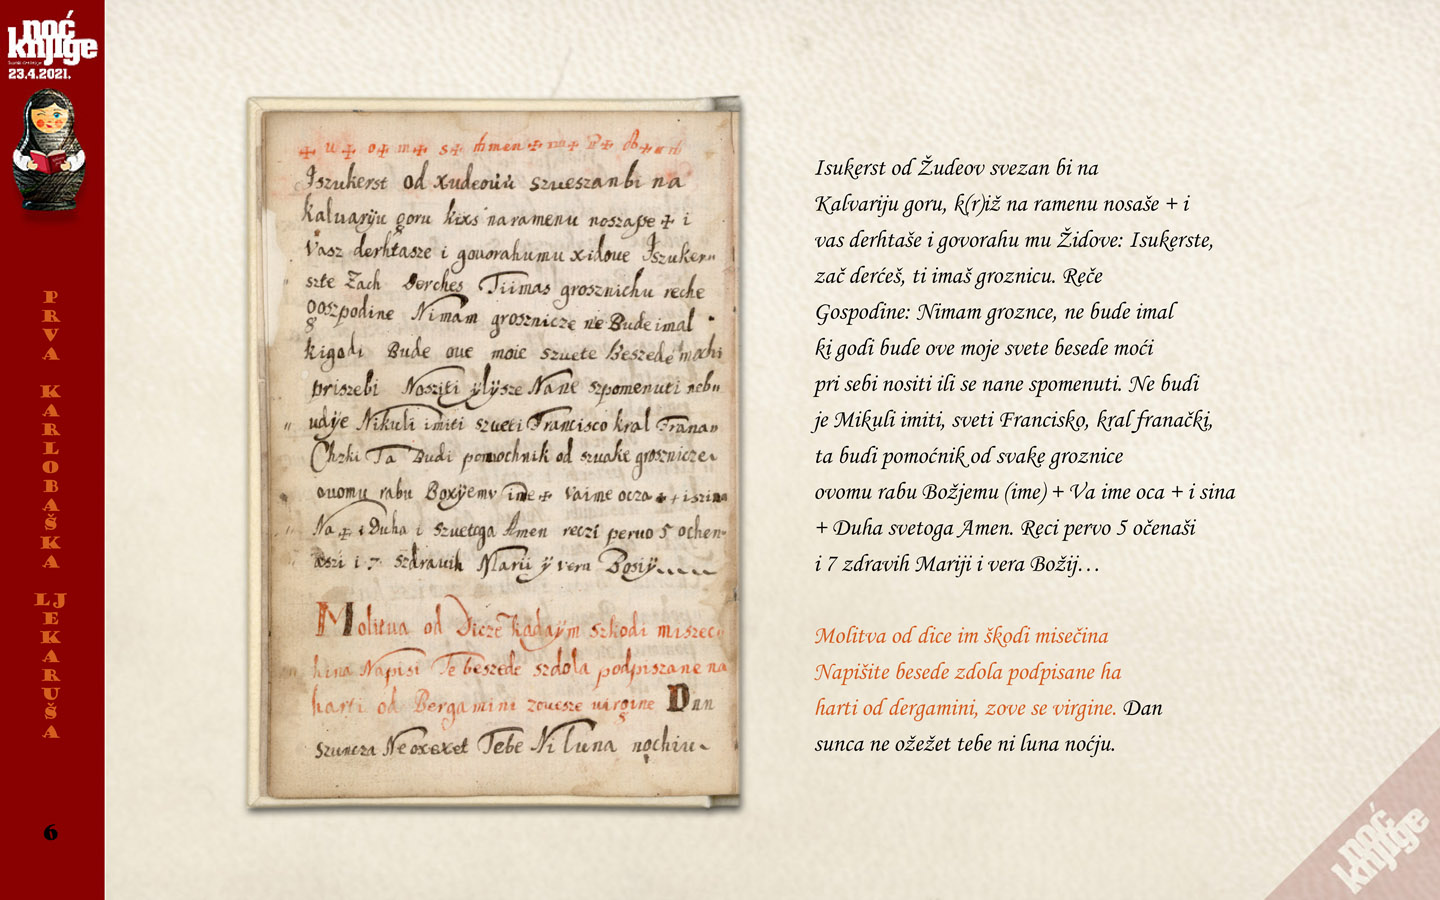 noć
knjige
23.4.2021.
PRVA KARLOBAŠKA LJEKARUŠA
6
Iszukerst od xudeouů szueszan bi na
kaluariju goru kixs na ramenu noszasse + i
Vasz derhtasze i gouorahumu xidoue Iszuker„
szte Zach Derches Tiimas grosznichu reche
Goszpodine Nimam grosznicze ne Bude imal
kigodi Bude oue moie szuete beszede mochi
priszebi Nosziti ÿlÿsze Nane szpomenuti neb„
udÿe Nikuli imiti szueti Francisco kral Franan
Chzki Ta Budi pomochnik od szuake grosznicze
ouomu rabu Boxÿemu ime + Vaime ocza + + i szina
Na + i Duha i szuetoga Amen reczi peruo 5 ochen
aszi i 7 szdrauih Marii ÿ vera Bosiÿ
Molitua od Dicze kadaÿm szkodi miszec
hina Napisi Te beszede szdola podpiszane na
harti od Bergamini zouesze uirgine Dan
szuncza Neoxexet Tebe Ni Luna nochiu
Isukerst od Žudeov svezan bi na
Kalvariju goru, k(r)iž na ramenu nosaše + i
vas derhtaše i govorahu mu Židove: Isukerste,
zač derćeš, ti imaš groznicu. Reče
Gospodine: Nimam groznce, ne bude imal
ki godi bude ove moje svete besede moći
pri sebi nositi ili se nane spomenuti. Ne budi
je Mikuli imiti, sveti Francisko, kral franački,
ta budi pomoćnik od svake groznice
ovomu rabu Božjemu (ime) + Va ime oca + i sina
+ Duha svetoga Amen. Reci pervo 5 očenaši
i 7 zdravih Mariji i vera Božij…
Molitva od dice im škodi misečina
Napišite besede zdola podpisane ha
harti od dergamini, zove se virgine. Dan
sunca ne ožežet tebe ni luna noćju.
noć
knjige